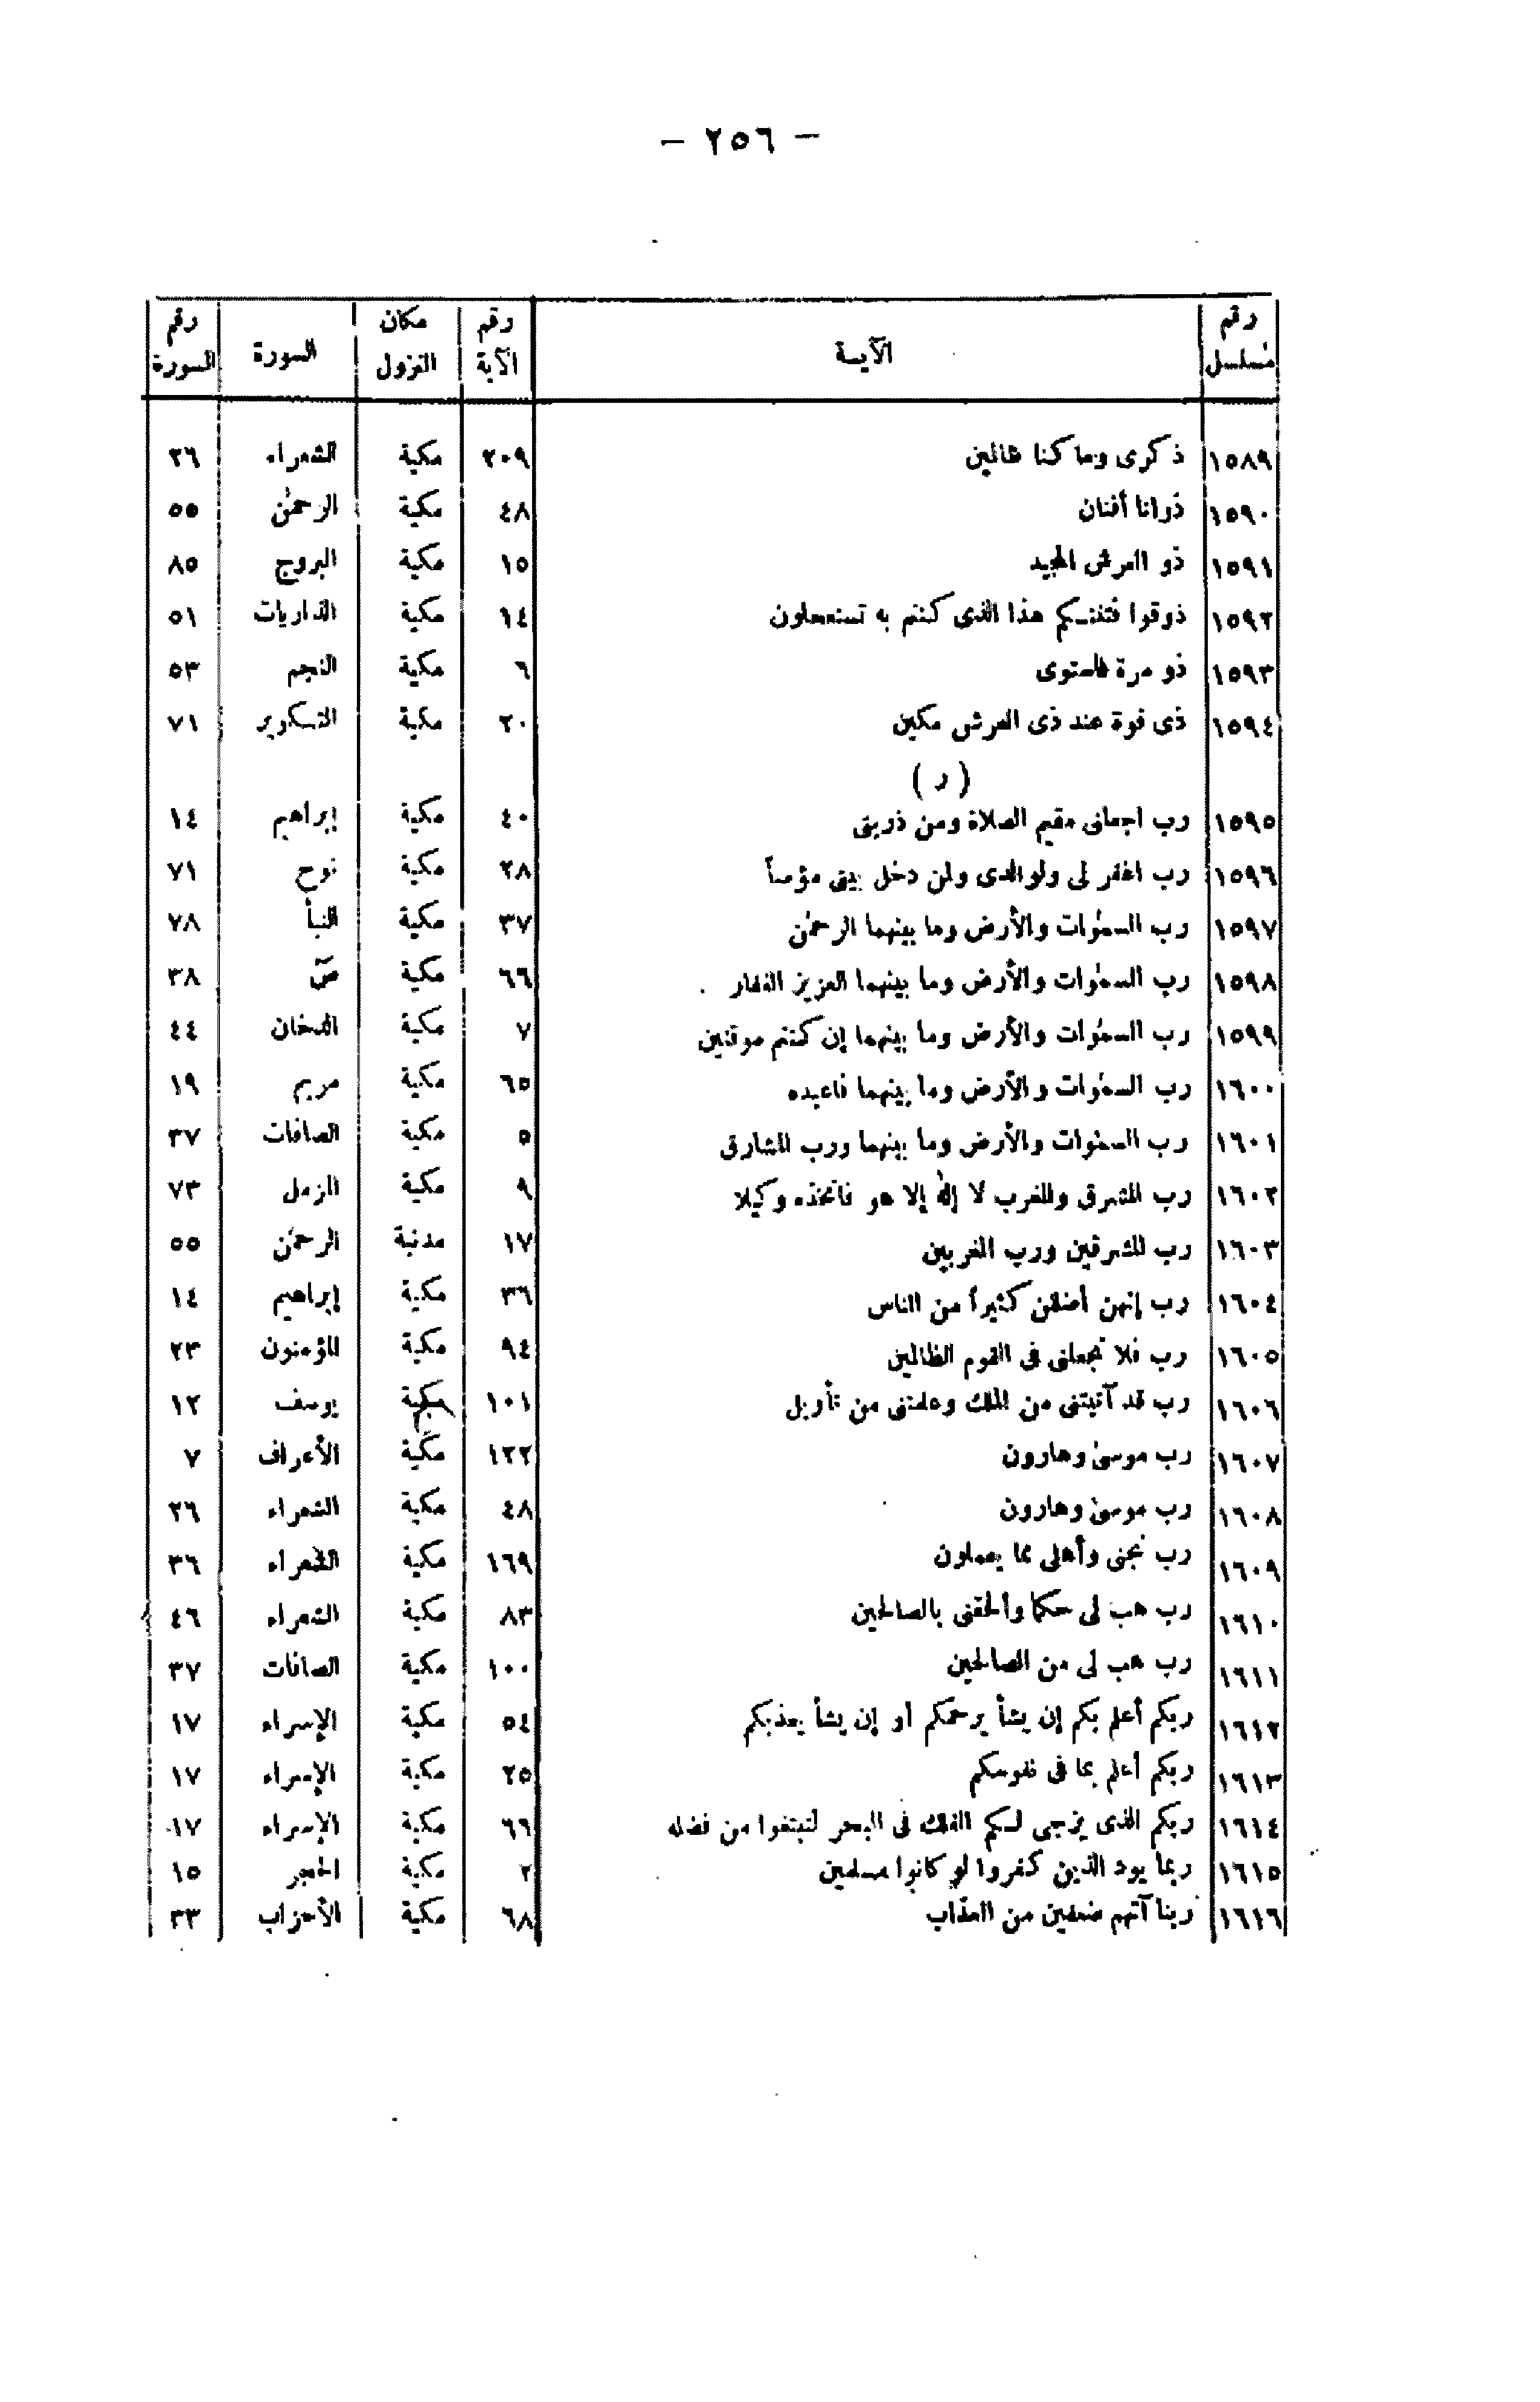 — ٢٥٦ —
رقم مسلسل | الآيــة | رقم الآية | مكان النزول | السورة | رقم السورة
١٥٨٩ | ذكرى وما كنا ظالمين | ٢٠٩ | مكية | الشعراء | ٢٦
١٥٩٠ | ذواتا أفنان | ٤٨ | مكية | الرحمٰن | ٥٥
١٥٩١ | ذو العرش المجيد | ١٥ | مكية | البروج | ٨٥
١٥٩٢ | ذوقوا فتنتكم هذا الذى كنتم به تستعجلون | ١٤ | مكية | الذاريات | ٥١
١٥٩٣ | ذو مرة فاستوى | ٦ | مكية | النجم | ٥٣
١٥٩٤ | ذى قوة عند ذى العرش مكين | ٢٠ | مكية | التكوير | ٧١
( ر )
١٥٩٥ | رب اجعلنى مقيم الصلاة ومن ذريتى | ٤٠ | مكية | إبراهيم | ١٤
١٥٩٦ | رب اغفر لى ولوالدى ولمن دخل بيتى مؤمناً | ٢٨ | مكية | نوح | ٧١
١٥٩٧ | رب السمٰوات والأرض وما بينهما الرحمٰن | ٣٧ | مكية | النبأ | ٧٨
١٥٩٨ | رب السمٰوات والأرض وما بينهما العزيز الغفار | ٦٦ | مكية | صٓ | ٣٨
١٥٩٩ | رب السمٰوات والأرض وما بينهما إن كنتم موقنين | ٧ | مكية | الدخان | ٤٤
١٦٠٠ | رب السمٰوات والأرض وما بينهما فاعبده | ٦٥ | مكية | مريم | ١٩
١٦٠١ | رب السمٰوات والأرض وما بينهما ورب المشارق | ٥ | مكية | الصافات | ٣٧
١٦٠٢ | رب المشرق والمغرب لا إلٰه إلا هو فاتخذه وكيلا | ٩ | مكية | المزمل | ٧٣
١٦٠٣ | رب المشرقين ورب المغربين | ١٧ | مدنية | الرحمٰن | ٥٥
١٦٠٤ | رب إنهن أضللن كثيراً من الناس | ٣٦ | مكية | إبراهيم | ١٤
١٦٠٥ | رب فلا تجعلنى فى القوم الظالمين | ٩٤ | مكية | المؤمنون | ٢٣
١٦٠٦ | رب قد آتيتنى من الملك وعلمتنى من تأويل | ١٠١ | مكية | يوسف | ١٢
١٦٠٧ | رب موسىٰ وهارون | ١٢٢ | مكية | الأعراف | ٧
١٦٠٨ | رب موسىٰ وهارون | ٤٨ | مكية | الشعراء | ٢٦
١٦٠٩ | رب نجنى وأهلى مما يعملون | ١٦٩ | مكية | الشعراء | ٣٦
١٦١٠ | رب هب لى حكما وألحقنى بالصالحين | ٨٣ | مكية | الشعراء | ٤٦
١٦١١ | رب هب لى من الصالحين | ١٠٠ | مكية | الصافات | ٣٧
١٦١٢ | ربكم أعلم بكم إن يشأ يرحمكم أو إن يشأ يعذبكم | ٥٤ | مكية | الإسراء | ١٧
١٦١٣ | ربكم أعلم بما فى نفوسكم | ٢٥ | مكية | الإسراء | ١٧
١٦١٤ | ربكم الذى يزجى لكم الفلك فى البحر لتبتغوا من فضله | ٦٦ | مكية | الإسراء | ١٧
١٦١٥ | ربما يود الذين كفروا لو كانوا مسلمين | ٢ | مكية | الحجر | ١٥
١٦١٦ | ربنا آتهم ضعفين من العذاب | ٦٨ | مكية | الأحزاب | ٣٣